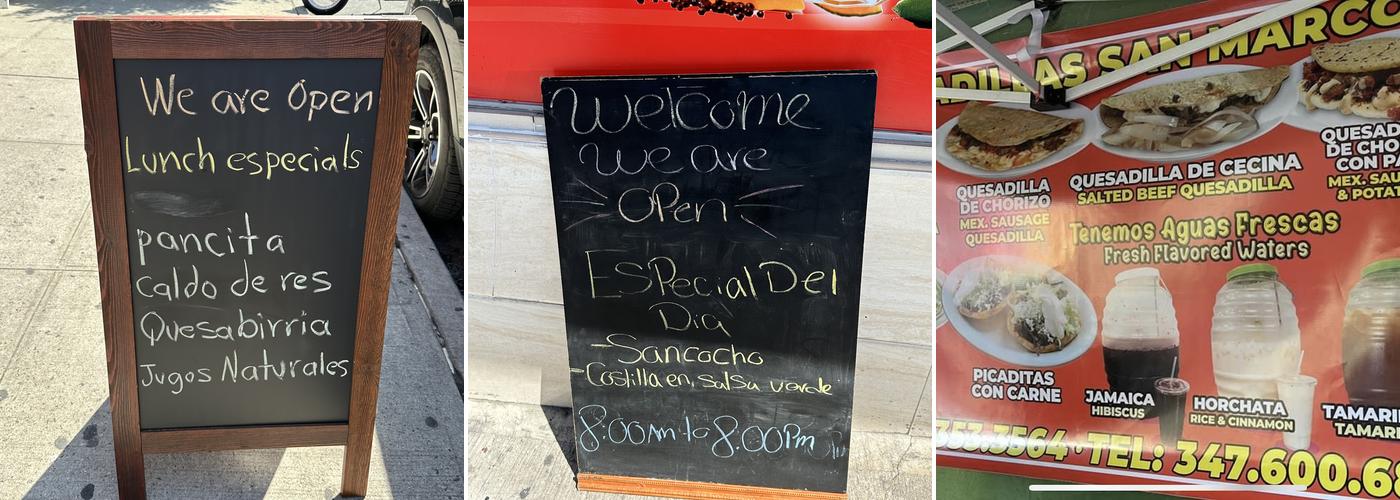 We are open
Lunch especials
pancita
caldo de res
Quesabirria
Jugos Naturales
Welcome
we are
OPen
ESPecial Del
Dia
-Sancocho
-Costilla en salsa verde
8:00Am to 8:00Pm
ADILLAS SAN MARCO
QUESADILLA
DE CHORIZO
MEX. SAUSAGE
QUESADILLA
QUESADILLA DE CECINA
SALTED BEEF QUESADILLA
QUESAD
DE CHO
CON PA
MEX. SAU
& POTA
Tenemos Aguas Frescas
Fresh Flavored Waters
PICADITAS
CON CARNE
JAMAICA
HIBISCUS
HORCHATA
RICE & CINNAMON
TAMARI
TAMAR
353.3564 · TEL: 347.600.6